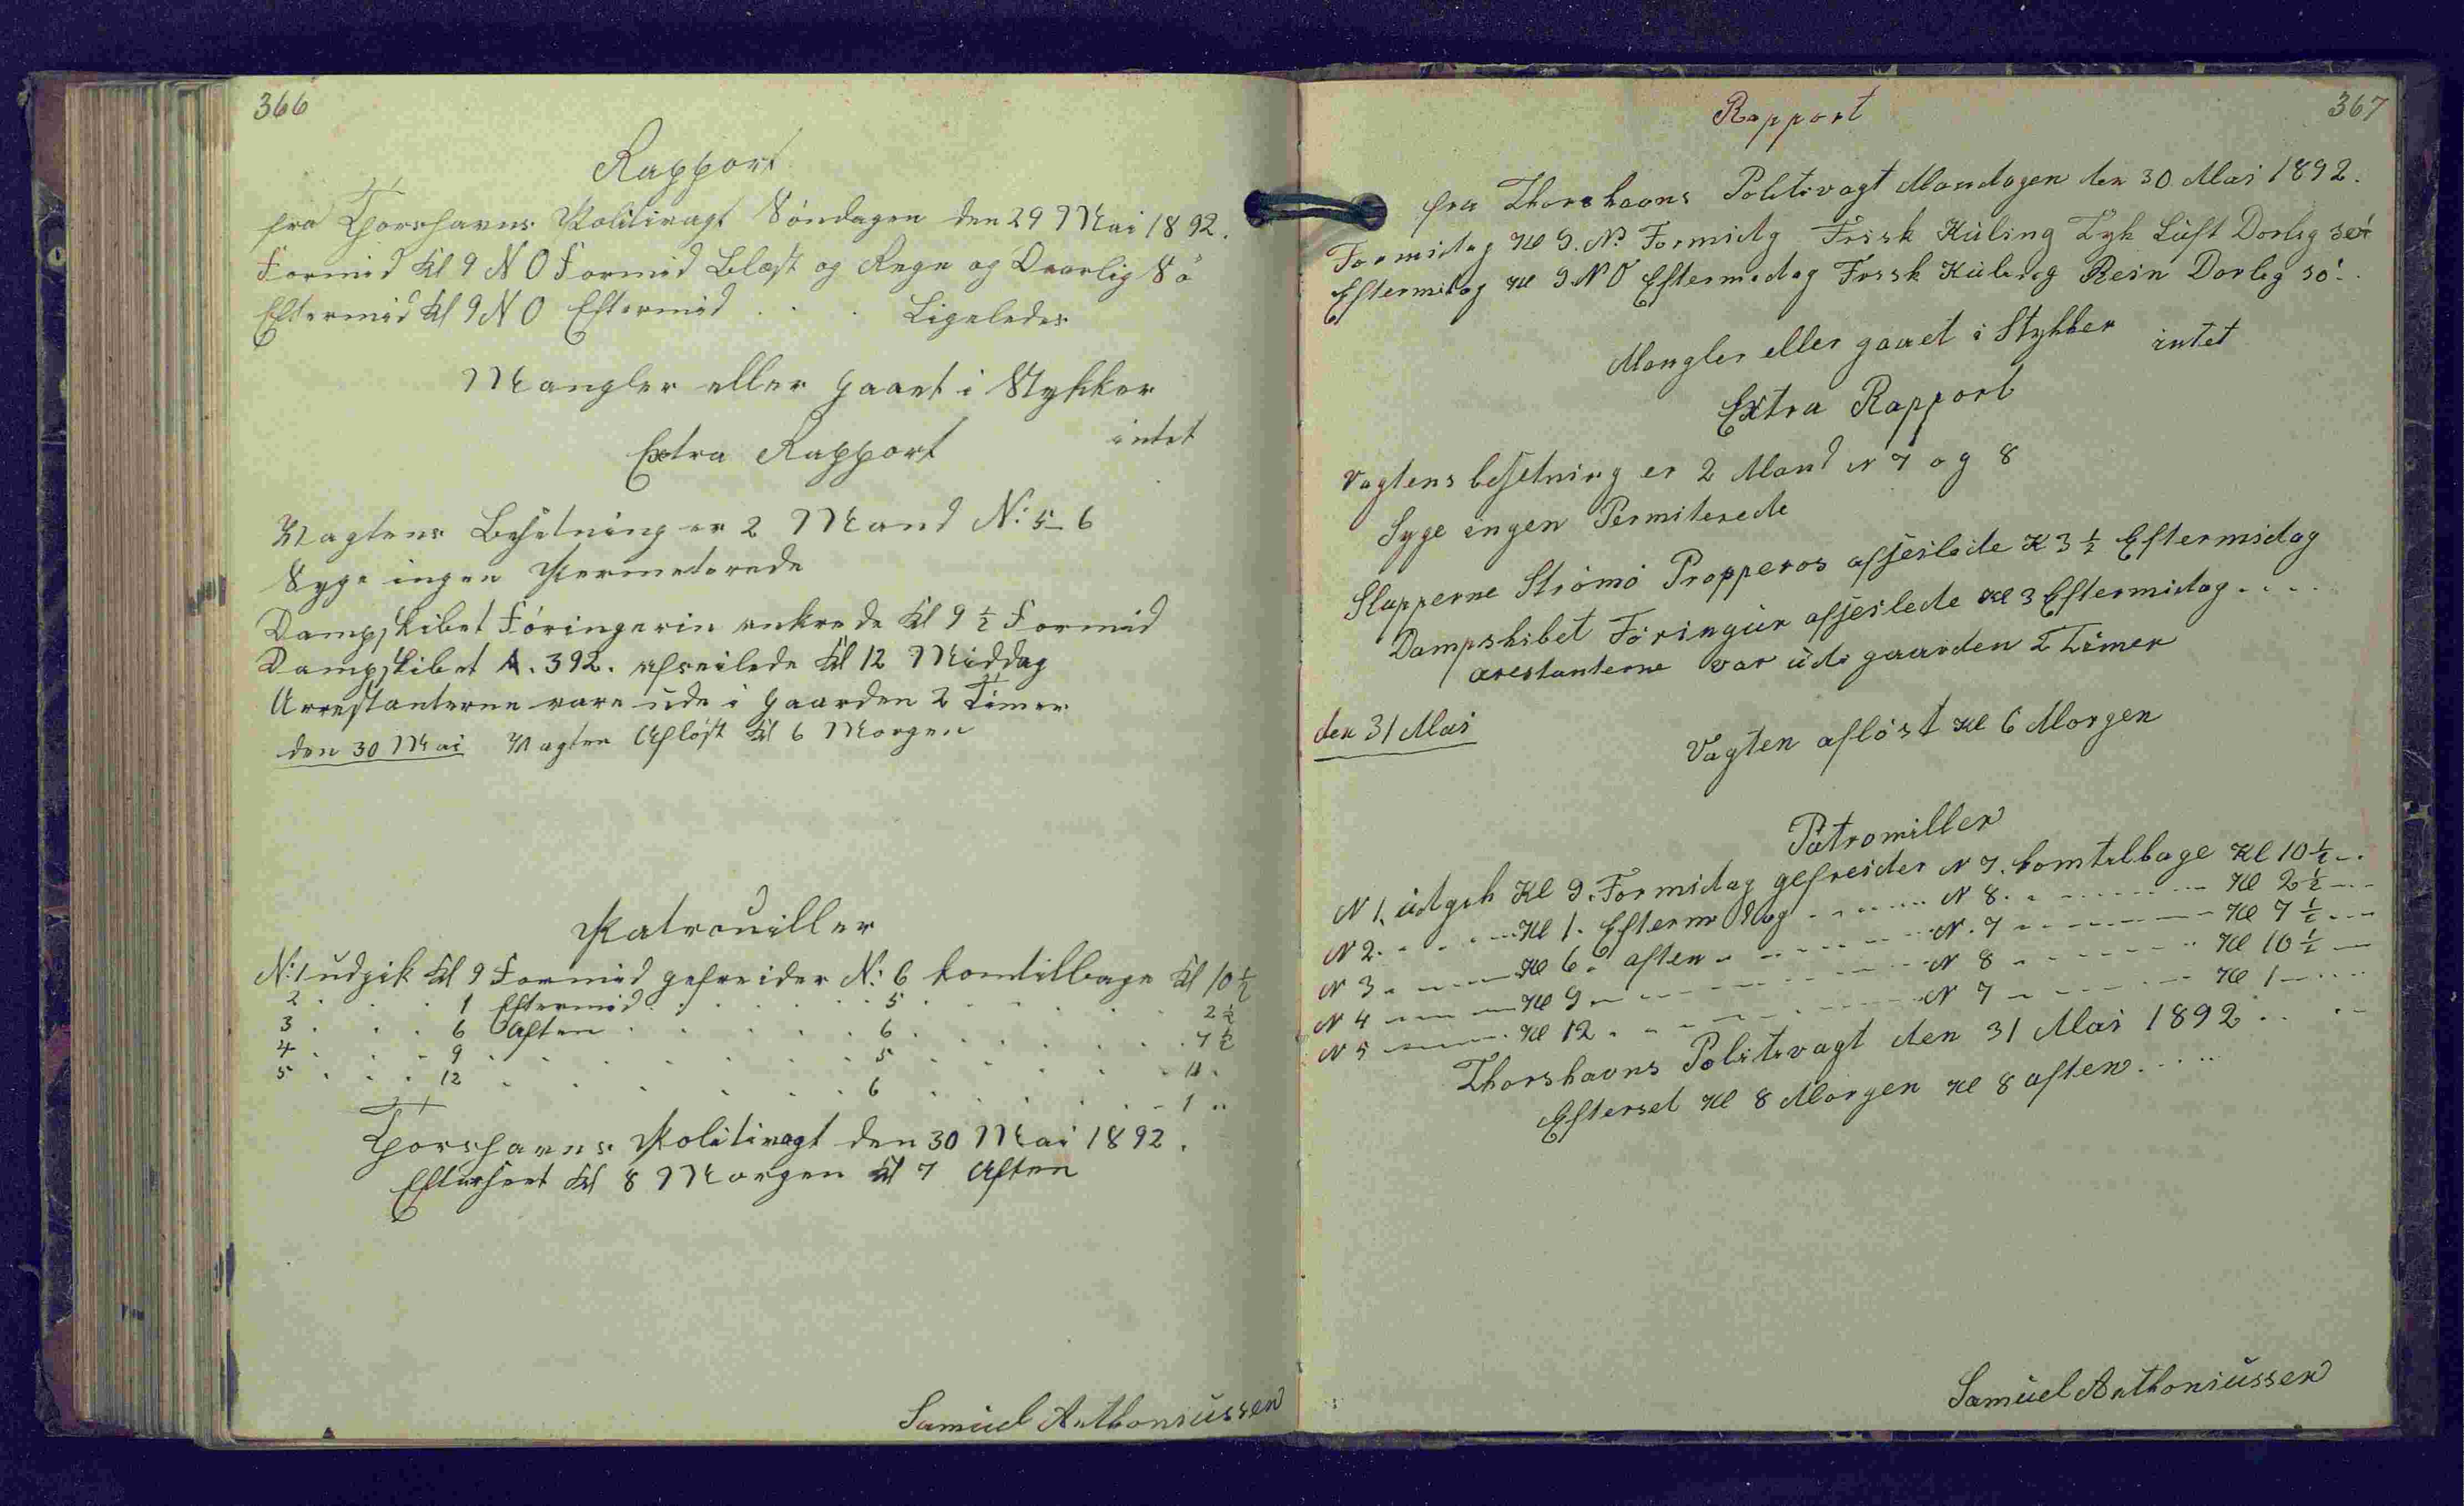 366
Rapport
fra Thorshavns Politivagt Söndagen den 29 Mai 1892.
Formid Kl 9 NO Formid Blæst og Regn og Daarlig Sö
Eftermid Kl 9 NO Eftermid . . . Ligeledes
Mangler eller gaaet i Stykker
intet
Extra Rapport
Vagtens Besetning er 2 Mand N: 5 - 6
Syge ingen Permeterede
Dampskibet Föringerin ankrede Kl 9 ½ Formid
Dampskibet A. 392. afseilede Kl 12 Middag
Arrestanterne vare ude i Gaarden 2 Timer
den 30 Mai Vagten Aflöst Kl 6 Morgen
Patrouiller
N: 1 udgik Kl 9 Formid gefreider N: 6 komtilbage Kl 10 ½
2 . . . 1 Eftermid . . . . 5 . . . . . 2 ½
3 . . . 6 Aften . . . . . 6 . . . . . 7 ½
4 . . . 9 . . . . . . 5 . . . . . 11 .
5 . . . 12 . . . . . . 6 . . . . . 1 ..
Thorshavns Politivagt den 30 Mai 1892.
Efterseet Kl 8 Morgen Kl 7 Aften
Samuel Anthoniussen
367
Rapport
fra Thorshavns Politivagt Mandagen den 30 Mai 1892.
Formidag Kl 9. N? Formidg Frisk Kuling Tyk Luft Dorlig
Eftermidag Kl 9. NO Eftermedag Frisk Kuling Rein Dorleg sö.
Mangler eller gaaet i Stykker intet
Extra Rapport
Vagtens besetning er 2 Mand N 7 og 8
Syge ingen Permiterede
Slupperne Strömö Propperos afseilede K 3 ½ Eftermidag
Dampskibet Föringur afseilede Kl 3 Eftermidag . . . .
arestanterne var udi gaarden 2 Timer
den 31 Mai
Vagten aflöst Kl 6 Morgen
Patromiller
N 1. udgik Kl 9. Formidag gefreider N 7. komtilbage Kl 10 ½ - .
N 2. - - - - Kl 1. Eftermidag - - - - N 8. - - - - Kl 2 ½ - - -
N 3 - - - - Kl 6. aften - - - - N. 7 - - - - Kl 7 ½ - - -
N 4 - - - - Kl 9 - - - - N 8 - - - - Kl 10 ½ - -
N 5 - - - - Kl 12 . - - - - N 7 - - - - Kl 1 - - - -
Thorshavns Politivagt den 31 Mai 1892 . . . -
Efterset Kl 8 Morgen Kl 8 aften . . . .
Samuel Anthoniussen